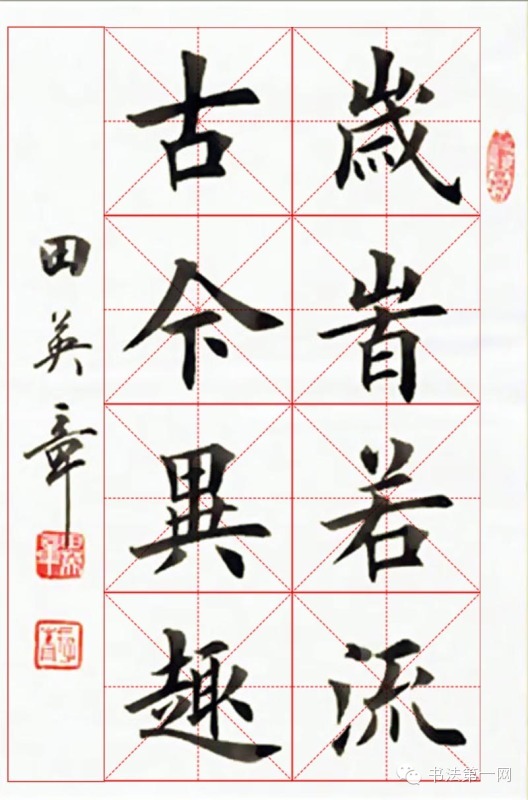 歲旹若流
古今異趣
田英章
书法第一网